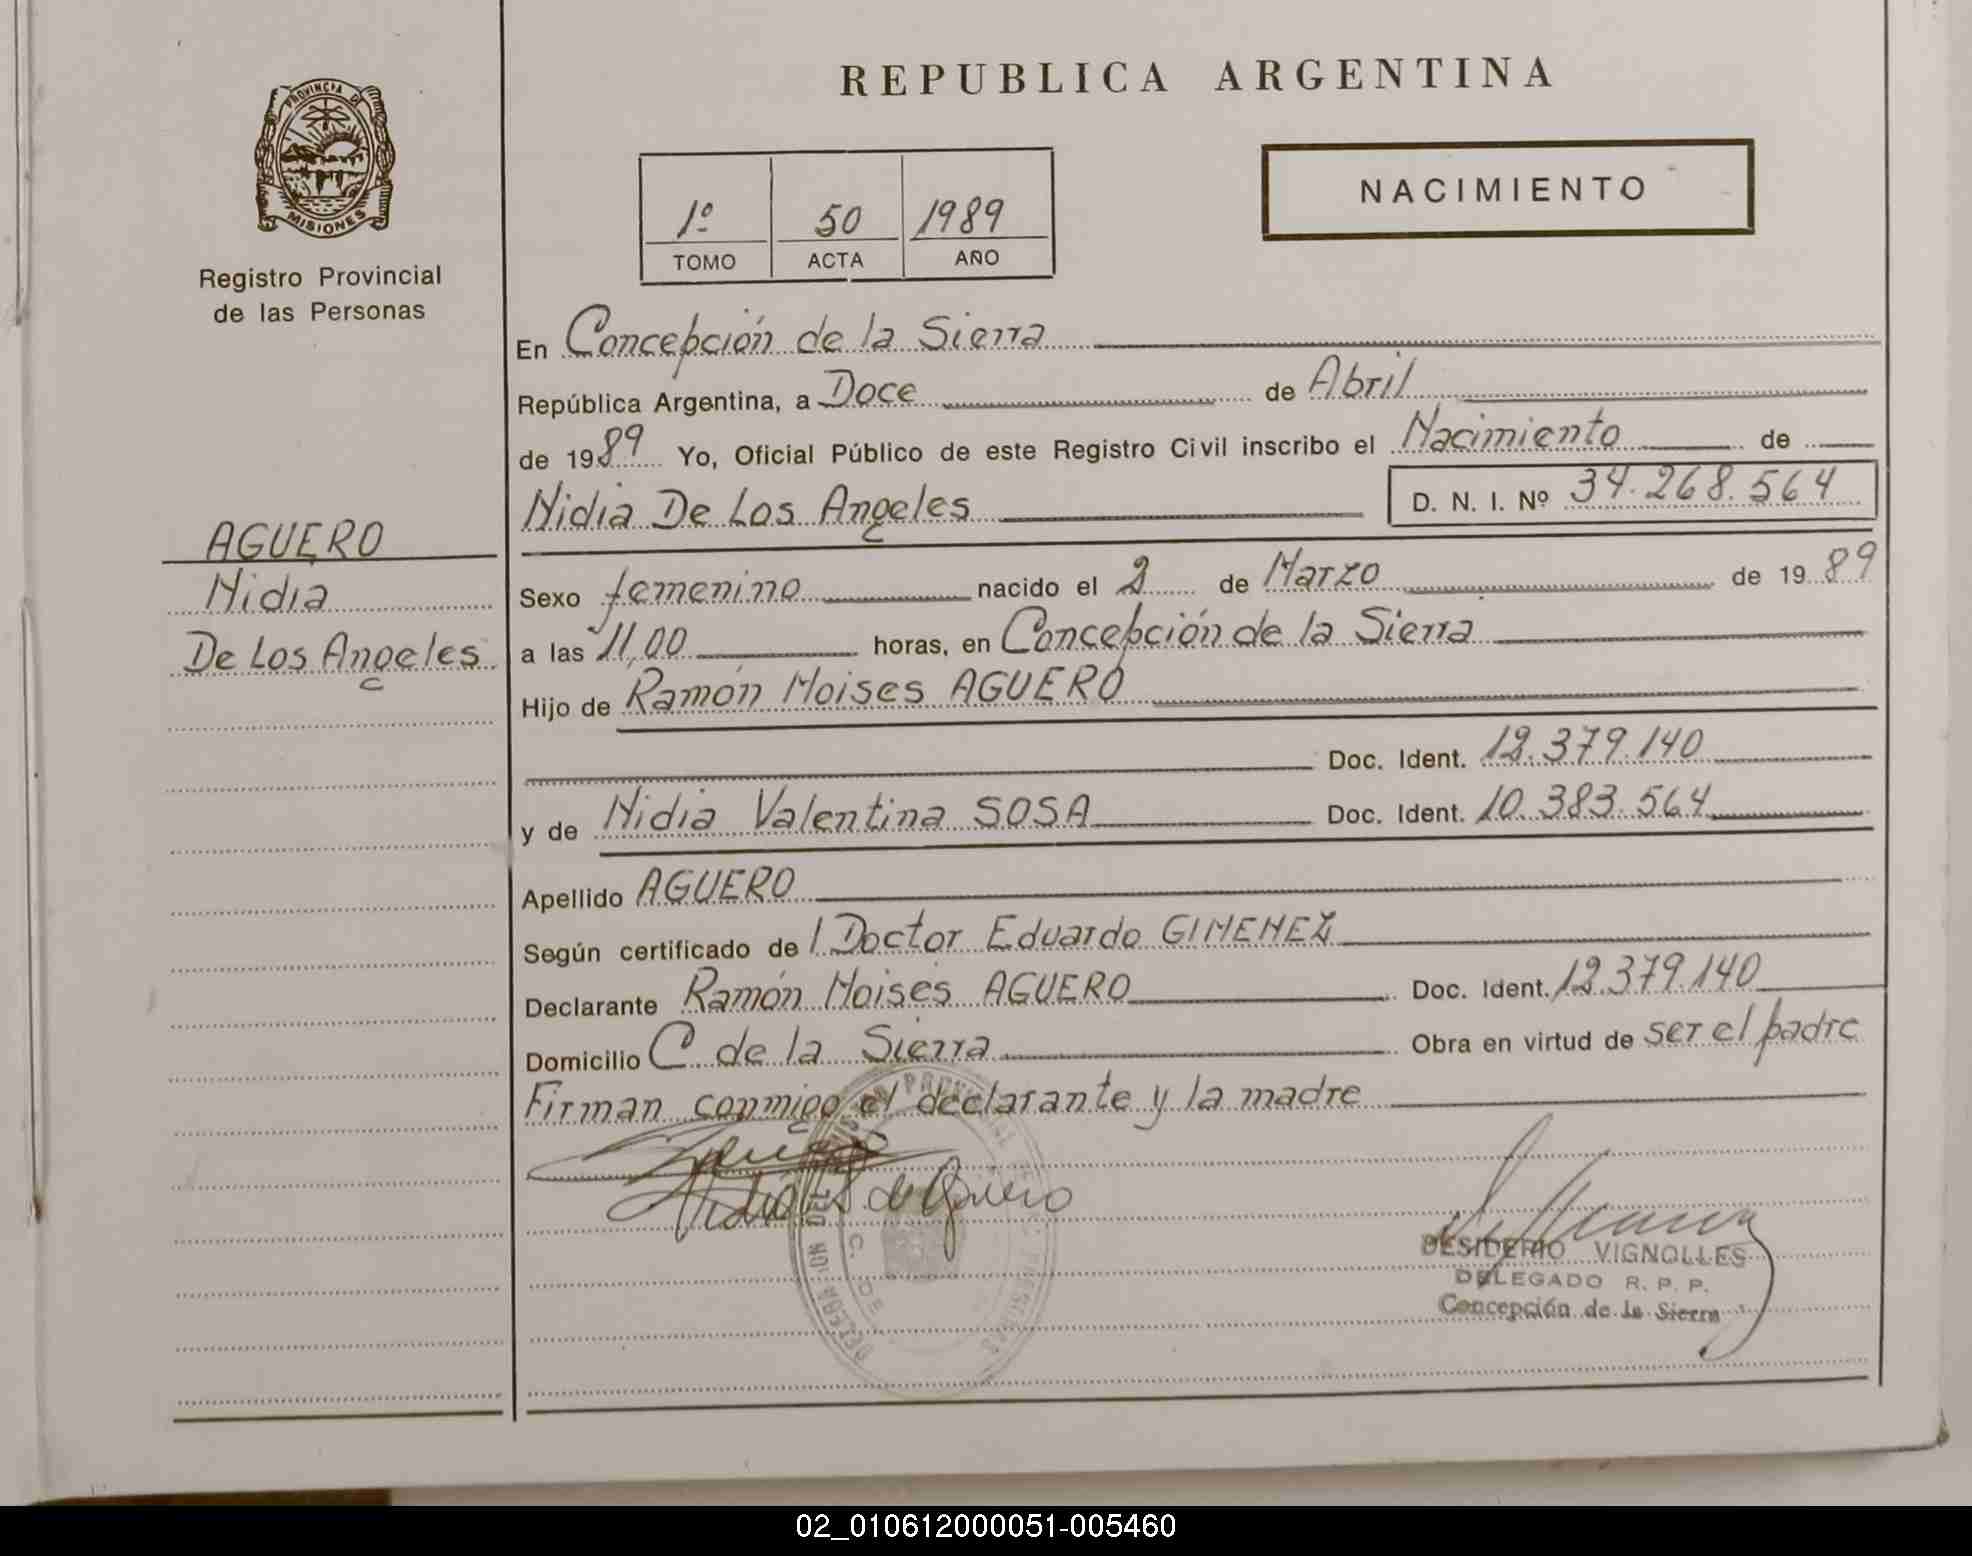 PROVINCIA DE
MISIONES
Registro Provincial
de las Personas
REPUBLICA ARGENTINA
1º 50 1989
TOMO ACTA AÑO
NACIMIENTO
AGUERO
Nidia
De Los Angeles
En Concepción de la Sierra
República Argentina, a Doce de Abril
de 1989 Yo, Oficial Público de este Registro Civil inscribo el Nacimiento de
Nidia De Los Angeles D. N. I. Nº 34.268.564
Sexo femenino nacido el 2 de Marzo de 1989
a las 11,00 horas, en Concepción de la Sierra
Hijo de Ramón Moises AGUERO
Doc. Ident. 12.379.140
y de Nidia Valentina SOSA Doc. Ident. 10.383.564
Apellido AGUERO
Según certificado de l Doctor Eduardo GIMENEZ
Declarante Ramón Moisés AGUERO Doc. Ident. 12.379.140
Domicilio C. de la Sierra Obra en virtud de ser el padre
Firman conmigo el declarante y la madre
Nidia S. de Aguero
DESIDERIO VIGNOLLES
DELEGADO R. P. P.
Concepción de la Sierra
02_010612000051-005460